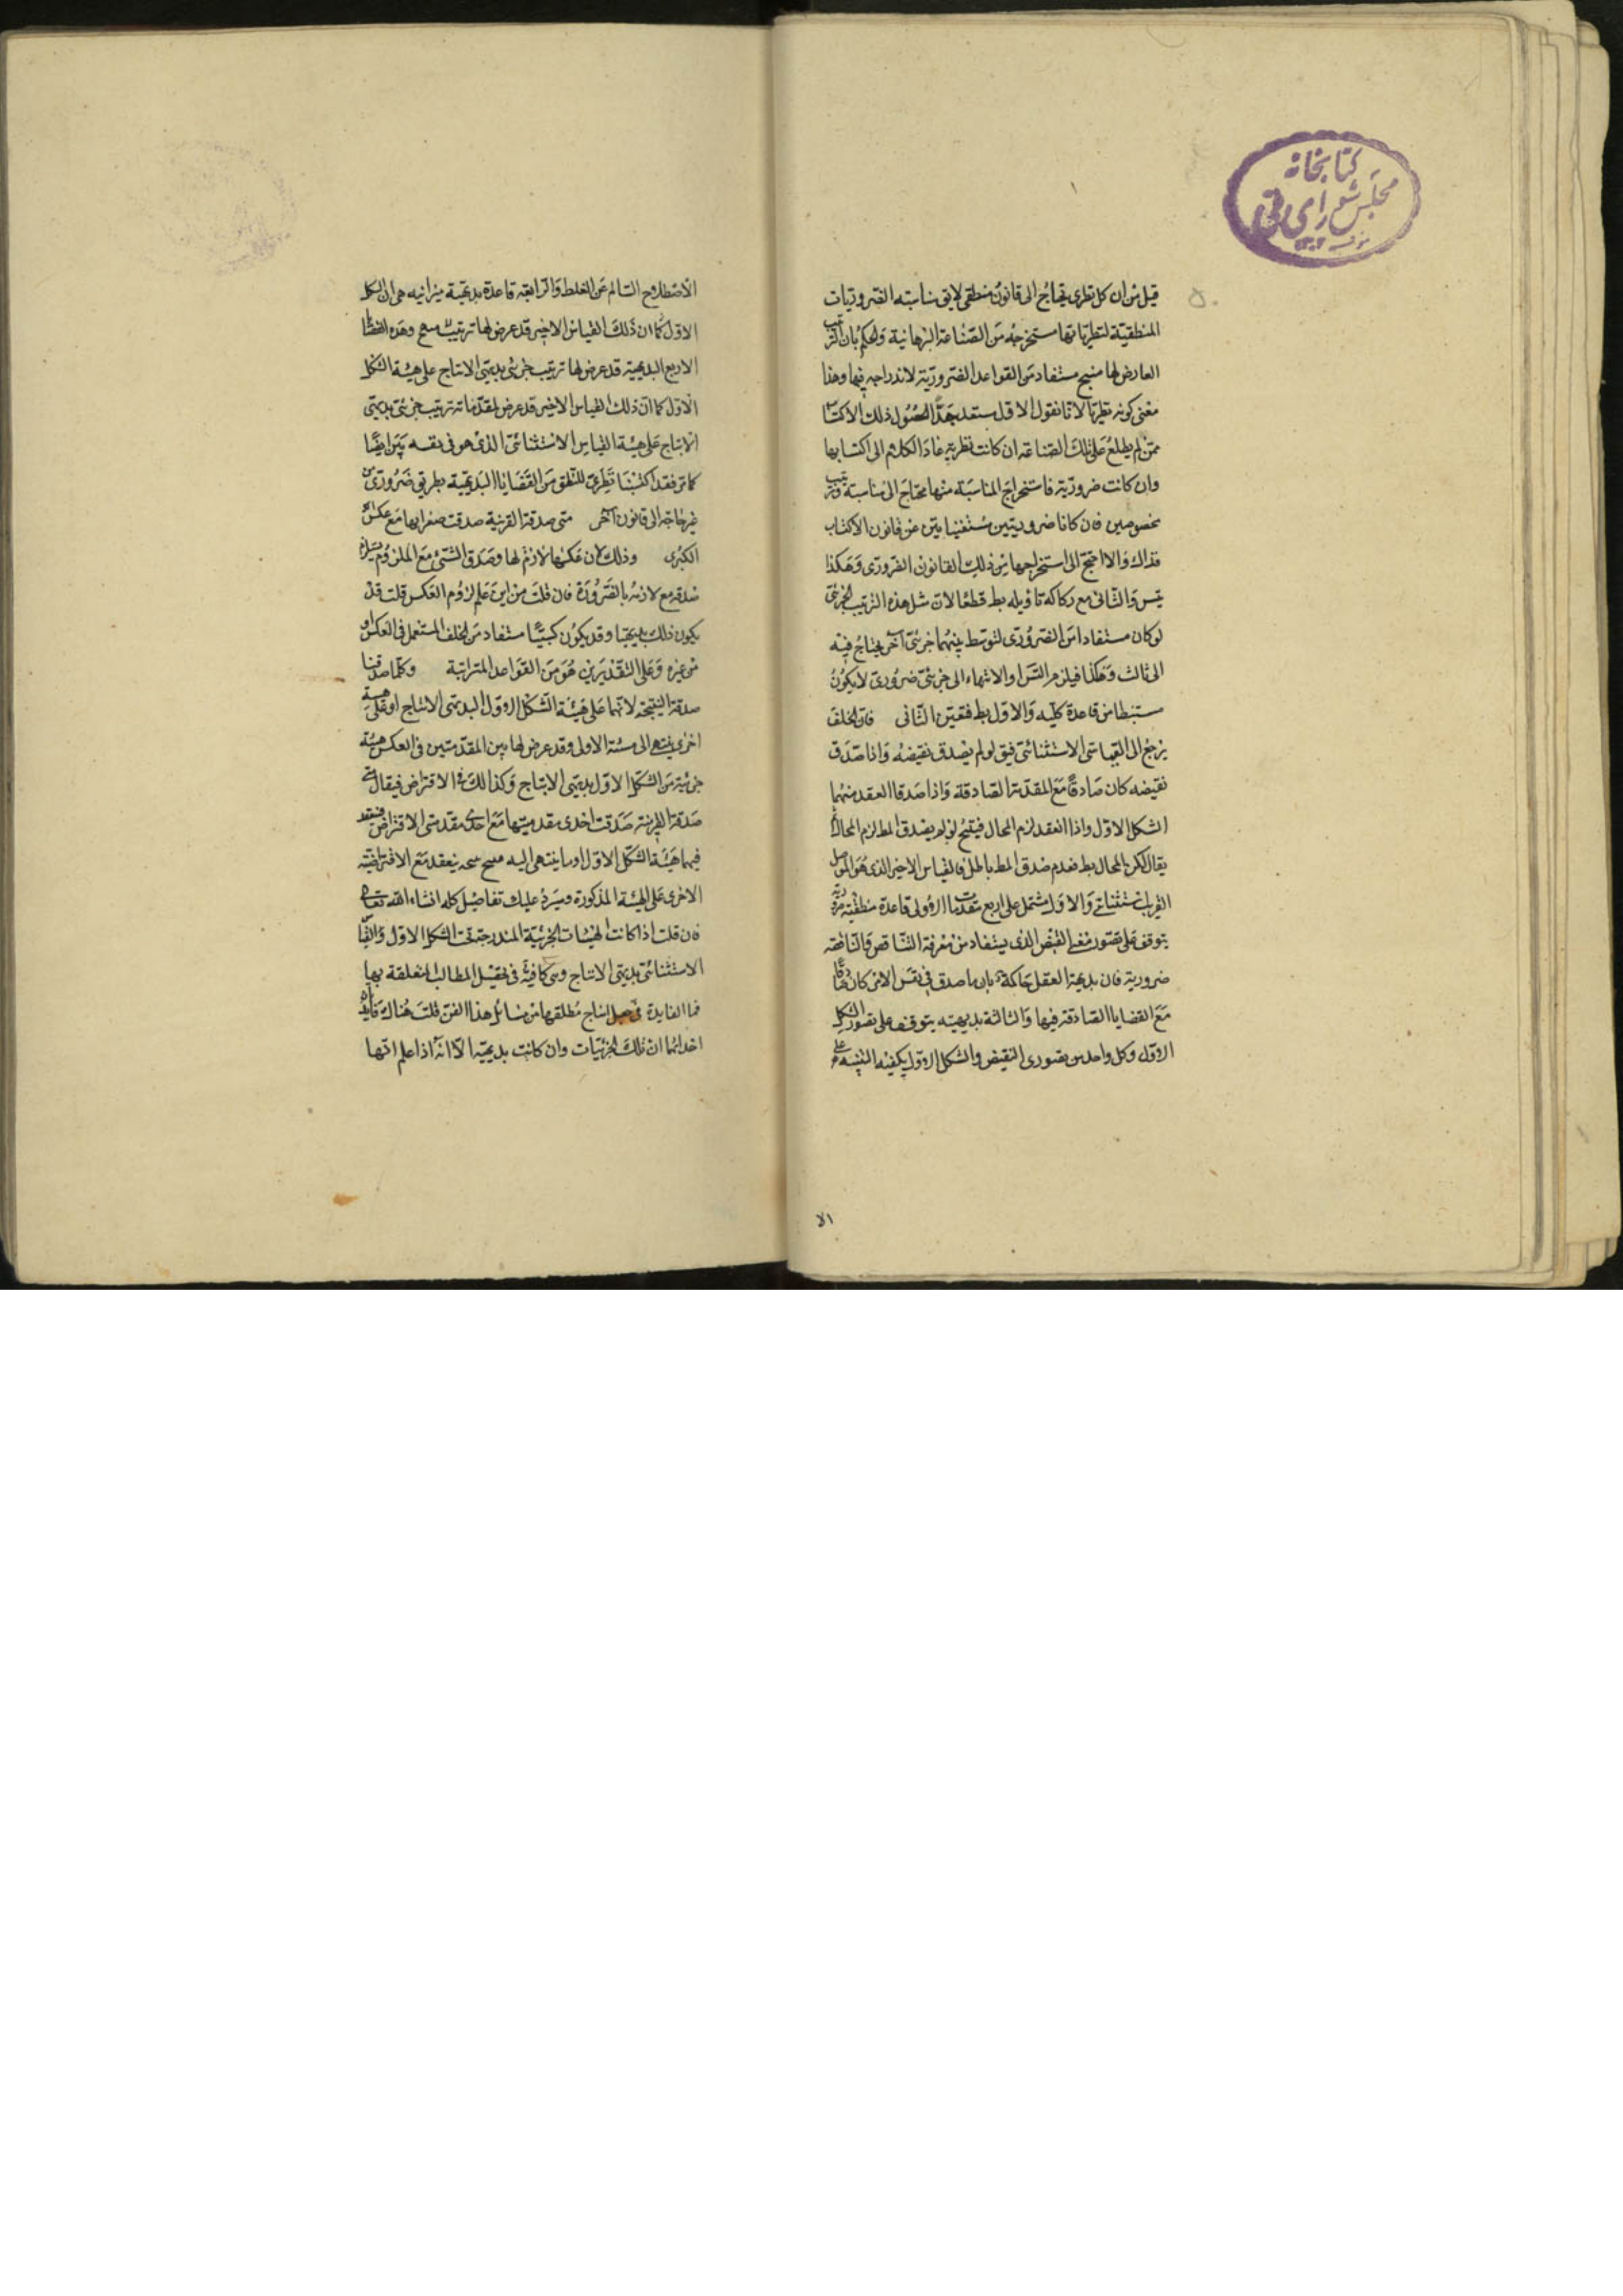 كتابخانه
مجلس شورای ملی
قيل من ان كل نظرى يحتاج الى قانون منطقى لايق مناسبته الضروريات
المنطقية لنظرياتها مستخرجه من الصناعة البرهانية والحكم بان الترتيب
العارض لها منتج مستفاد من القواعد الضرورية لاندراجه فيها وهذا
معنى كونه نظريا لا انا نقول الاول مستعد جدا لحصول ذلك الاكتساب
ممن لم يطلع على تلك الصناعة ان كانت نظرية عاد الكلام الى اكتسابها
وان كانت ضرورية فاستخراج المناسبة منها محتاج الى مناسبة وترتيب
مخصوصين فان كانا ضروريتين مستغنيا بتين عن قانون الاكتساب
فذاك والا احتج الى استخراجها من ذلك القانون الضرورى وهكذا
يتس والثانى مع ركاكة تاويله بط قطعا لان مثل هذه الترتيب الجزئى
لو كان مستفادا من الضرورى لتوسط بينهما جزئى آخر يحتاج فيه
الى ثالث وهكذا فيلزم التس او الانتهاء الى جزئى ضرورى لا يكون
مستنبطا من قاعدة كلية والاول بط فتعين الثانى فان الخلف
يرجع الى القياس الاستثنائى فيق لو لم يصدق نقيضه واذا صدق
نقيضه كان صادقا مع المقدمة الصادقة واذا صدقا انعقد منهما
الشكل الاول واذا انعقد لزم المحال فينتج لو لم يصدق المط لزم المحال
يقال لكن المحال بط فعدم صدق المط باطل فالقياس الاخير الذى هو الموصل
القريب استثنائى والاول مشتمل على اربع مقدمات الاولى قاعدة منطقية ضرورية
يتوقف على تصور معنى النقيض الذى يستفاد من معرفة التناقض والثانية
ضرورية فان بديهة العقل حاكمة بان ما صدق فى نفس الامر كان صادقا
مع القضايا الصادقة فيها والثالثة بديهية يتوقف على تصور الشكل
الاول وكل واحد من تصورى النقيض والشكل الاول يكفيه التنبيه على
الا
الاصطلاح السالم عن الغلط والرابعة قاعدة بديهية ميزانية هى ان الشكل
الاول كما ان ذلك القياس الاخير قد عرض لها ترتيب منتج وهذه القضايا
الاربع البديهية قد عرض لها ترتيب جزئى بديهى الانتاج على هيئة الشكل
الاول كما ان ذلك القياس الاخير قد عرض لمقدماته ترتيب جزئى بديهى
الانتاج على هيئة القياس الاستثنائى الذى هو فى نفسه بين ايضا
كما مر فقد اكتسبنا نظرى المنطق من القضايا البديهية بطريق ضرورى من
غير حاجة الى قانون آخر متى صدقت القرينة صدقت صغراها مع عكس
الكبرى وذلك لان عكسها لازم لها وصدق الشئ مع الملزوم يستلزم
صدقه مع لازمه بالضرورة فان قلت من اين علم لزوم العكس قلت قد
يكون ذلك بديهيا وقد يكون كسبيا مستفاد من الخلف المستعمل فى العكس او
من غيره وعلى التقديرين هو من القواعد المترتبة وكلما صدقتا
صدقت النتيجة لانهما على هيئة الشكل الاول البديهى الانتاج او على هيئة
اخرى ينتهى الى هيئة الاولى وقد عرض لها بين المقدمتين فى العكس هيئة
جزئية من الشكل الاول بديهى الانتاج وكذا لك فى الافتراض فيقال متى
صدقت القرينة صدقت احدى مقدمتيها مع احدى مقدمتى الافتراض فينعقد
فيهما هيئة الشكل الاول او ما ينتهى اليه منتج ينعقد مع الافتراضية
الاخرى على الهيئة المذكورة وسيرد عليك تفاصيل كله انشاء الله تعالى
فان قلت اذا كانت الهيئات الجزئية المندرجة تحت الشكل الاول والقياس
الاستثنائى بديهى الانتاج وهى كافية فى تحصيل المطالب المتعلقة بها
فما الفايدة فى جعل انتاج مطلقها من مسائل هذا الفن قلت هناك فايدتان
احداهما ان تلك الجزئيات وان كانت بديهية الا انه اذا علم انها